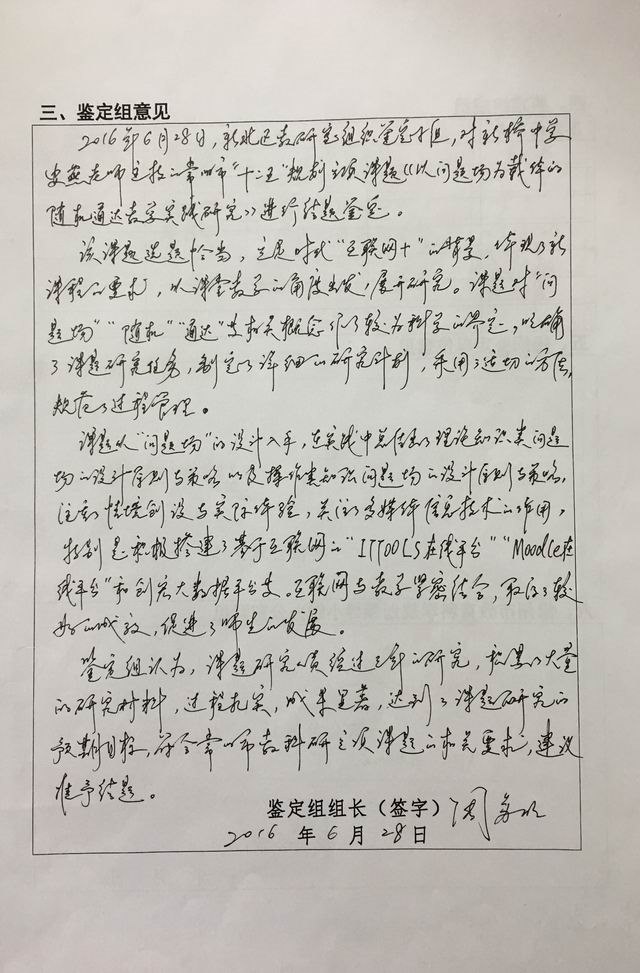 三、鉴定组意见
2016年6月28日，新北区教研室组织鉴定小组，对新桥中学
史燕老师主持的常州市“十二五”规划立项课题《以问题场为载体的
随机通达教学实践研究》进行结题鉴定。
该课题选题恰当，立足时代“互联网+”的背景，体现了新
课程的要求，从课堂教学的角度出发，展开研究。课题对“问
题场”“随机”“通达”等相关概念作了较为科学的界定，明确
了课题研究任务，制定了详细的研究计划，采用了适切的方法，
规范了过程管理。
课题从“问题场”的设计入手，在实践中总结了理论知识类问题
场的设计原则与策略以及操作类知识问题场的设计原则与策略，
注重情境创设与实际体验，关注多媒体信息技术的作用，
特别是积极搭建了基于互联网的“ITTOOLS在线平台”“Moodle在
线平台”和创客大数据平台等。互联网与教学紧密结合，取得了较
好的成效，促进了师生的发展。
鉴定组认为，课题研究人员经过三年的研究，积累了大量
的研究材料，过程扎实，成果显著，达到了课题研究的
预期目标，符合常州市教科研立项课题的相关要求，建议
准予结题。
鉴定组组长（签字）周
2016 年 6 月 28 日